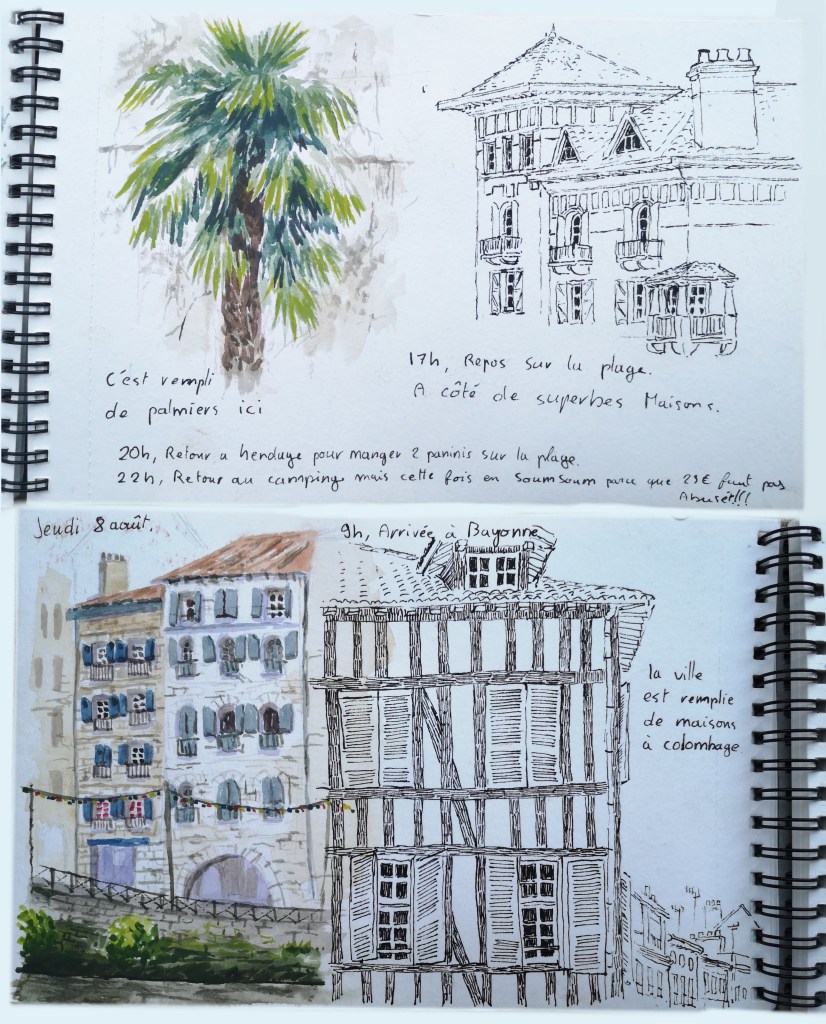 C'est rempli
de palmiers ici
17h, Repos sur la plage.
A côté de superbes Maisons.
20h, Retour a hendaye pour manger 2 paninis sur la plage.
22h, Retour au camping mais cette fois en soumsoum parce que 29€ faut pas
Abuser!!!
Jeudi 8 août.
9h, Arrivée à Bayonne
la ville
est remplie
de maisons
à colombage